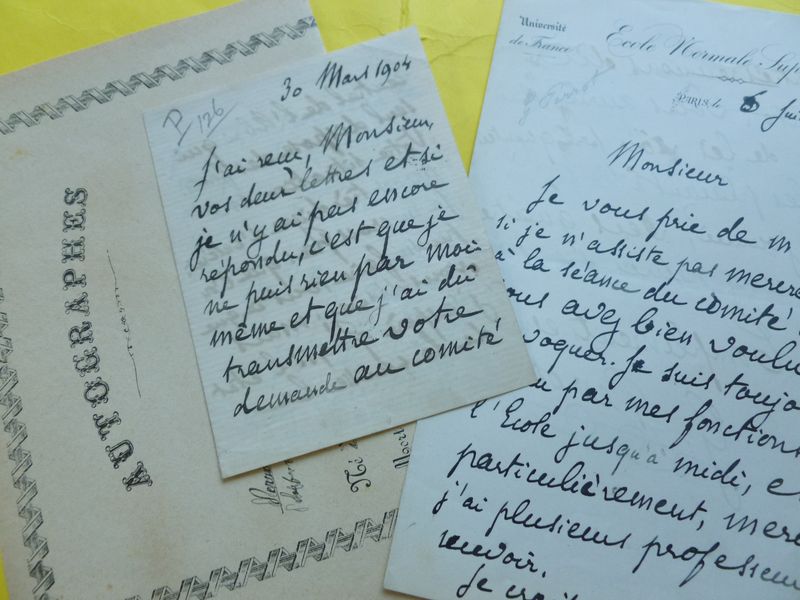 AUTOGRAPHES
P 126
30 Mars 1904
J'ai reçu, Monsieur,
vos deux lettres et si
je n'y ai pas encore
répondu, c'est que je
ne puis rien par moi
même et que j'ai dû
transmettre votre
demande au comité
Université
de France
Ecole Normale Sup
PARIS, le 6 Jui
Monsieur
Je vous prie de m
si je n'assiste pas mercre
à la séance du comité
vous avez bien voulu
voquer. Je suis toujo
par mes fonctions
l'Ecole jusqu'à midi, e
particulièrement, mere
j'ai plusieurs professeu
revoir.
Je